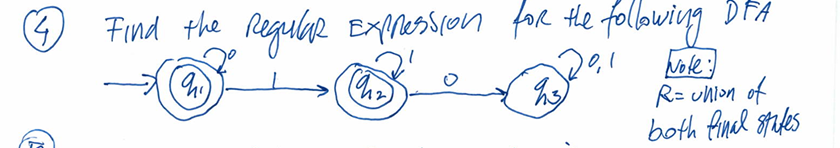 4 Find the Regular Expression for the following DFA
0 1 0,1 Note:
q1 1 q2 0 q3 R = union of
both final states